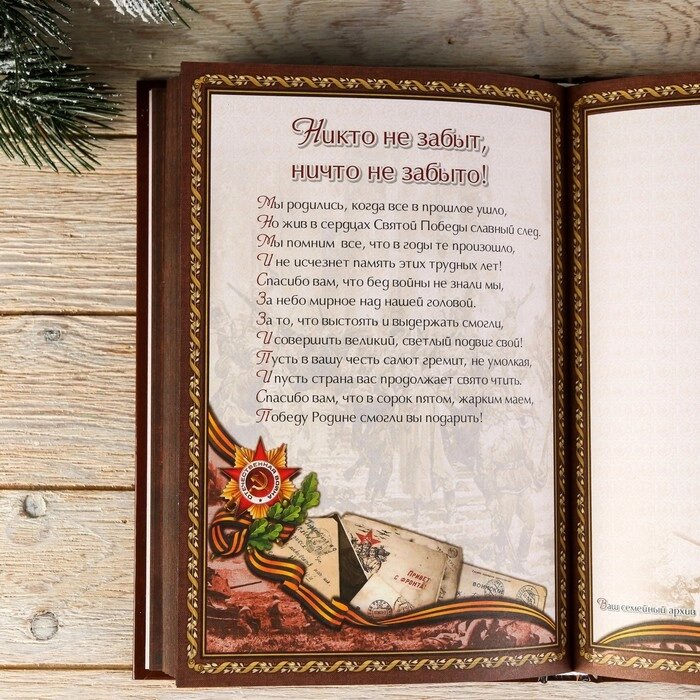 Никто не забыт,
ничто не забыто!
Мы родились, когда все в прошлое ушло,
Но жив в сердцах Святой Победы славный след.
Мы помним все, что в годы те произошло,
И не исчезнет память этих трудных лет!
Спасибо вам, что бед войны не знали мы,
За небо мирное над нашей головой.
За то, что выстоять и выдержать смогли,
И совершить великий, светлый подвиг свой!
Пусть в вашу честь салют гремит, не умолкая,
И пусть страна вас продолжает свято чтить.
Спасибо вам, что в сорок пятом, жарким маем,
Победу Родине смогли вы подарить!
ОТЕЧЕСТВЕННАЯ ВОЙНА
ПРИВЕТ
С ФРОНТА!
ВОИНСКОЕ
Ваш семейный архив